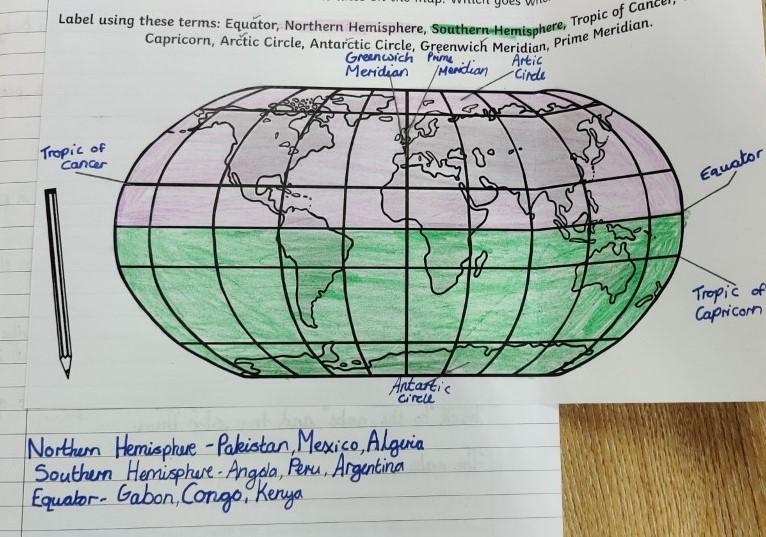 Label using these terms: Equator, Northern Hemisphere, Southern Hemisphere, Tropic of Cancer,
Capricorn, Arctic Circle, Antarctic Circle, Greenwich Meridian, Prime Meridian.
Greenwich
Meridian
Prime
Meridian
Artic
Circle
Tropic of
Cancer
Equator
Tropic of
Capricorn
Antartic
Circle
Northern Hemisphere - Pakistan, Mexico, Algeria
Southern Hemisphere - Angola, Peru, Argentina
Equator - Gabon, Congo, Kenya